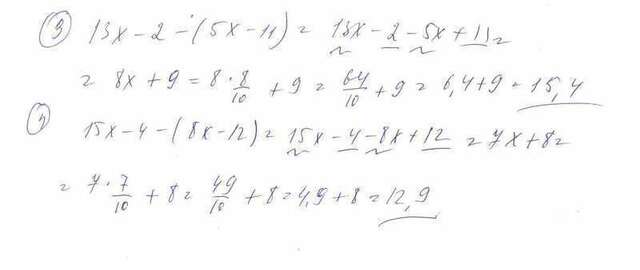 ③ 13x - 2 - (5x - 11) = 13x - 2 - 5x + 11 =
= 8x + 9 = 8 · 8/10 + 9 = 64/10 + 9 = 6,4 + 9 = 15,4
④ 15x - 4 - (8x - 12) = 15x - 4 - 8x + 12 = 7x + 8 =
= 7 · 7/10 + 8 = 49/10 + 8 = 4,9 + 8 = 12,9